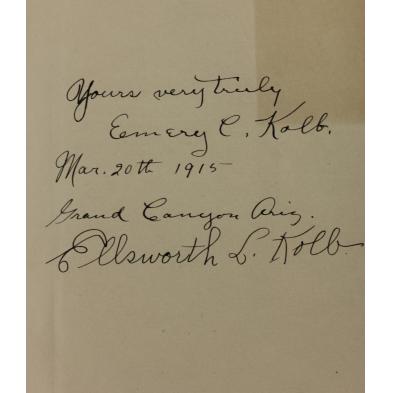 Yours very truly
Emery C. Kolb.
Mar. 20th 1915
Grand Canyon Ariz.
Ellsworth L. Kolb